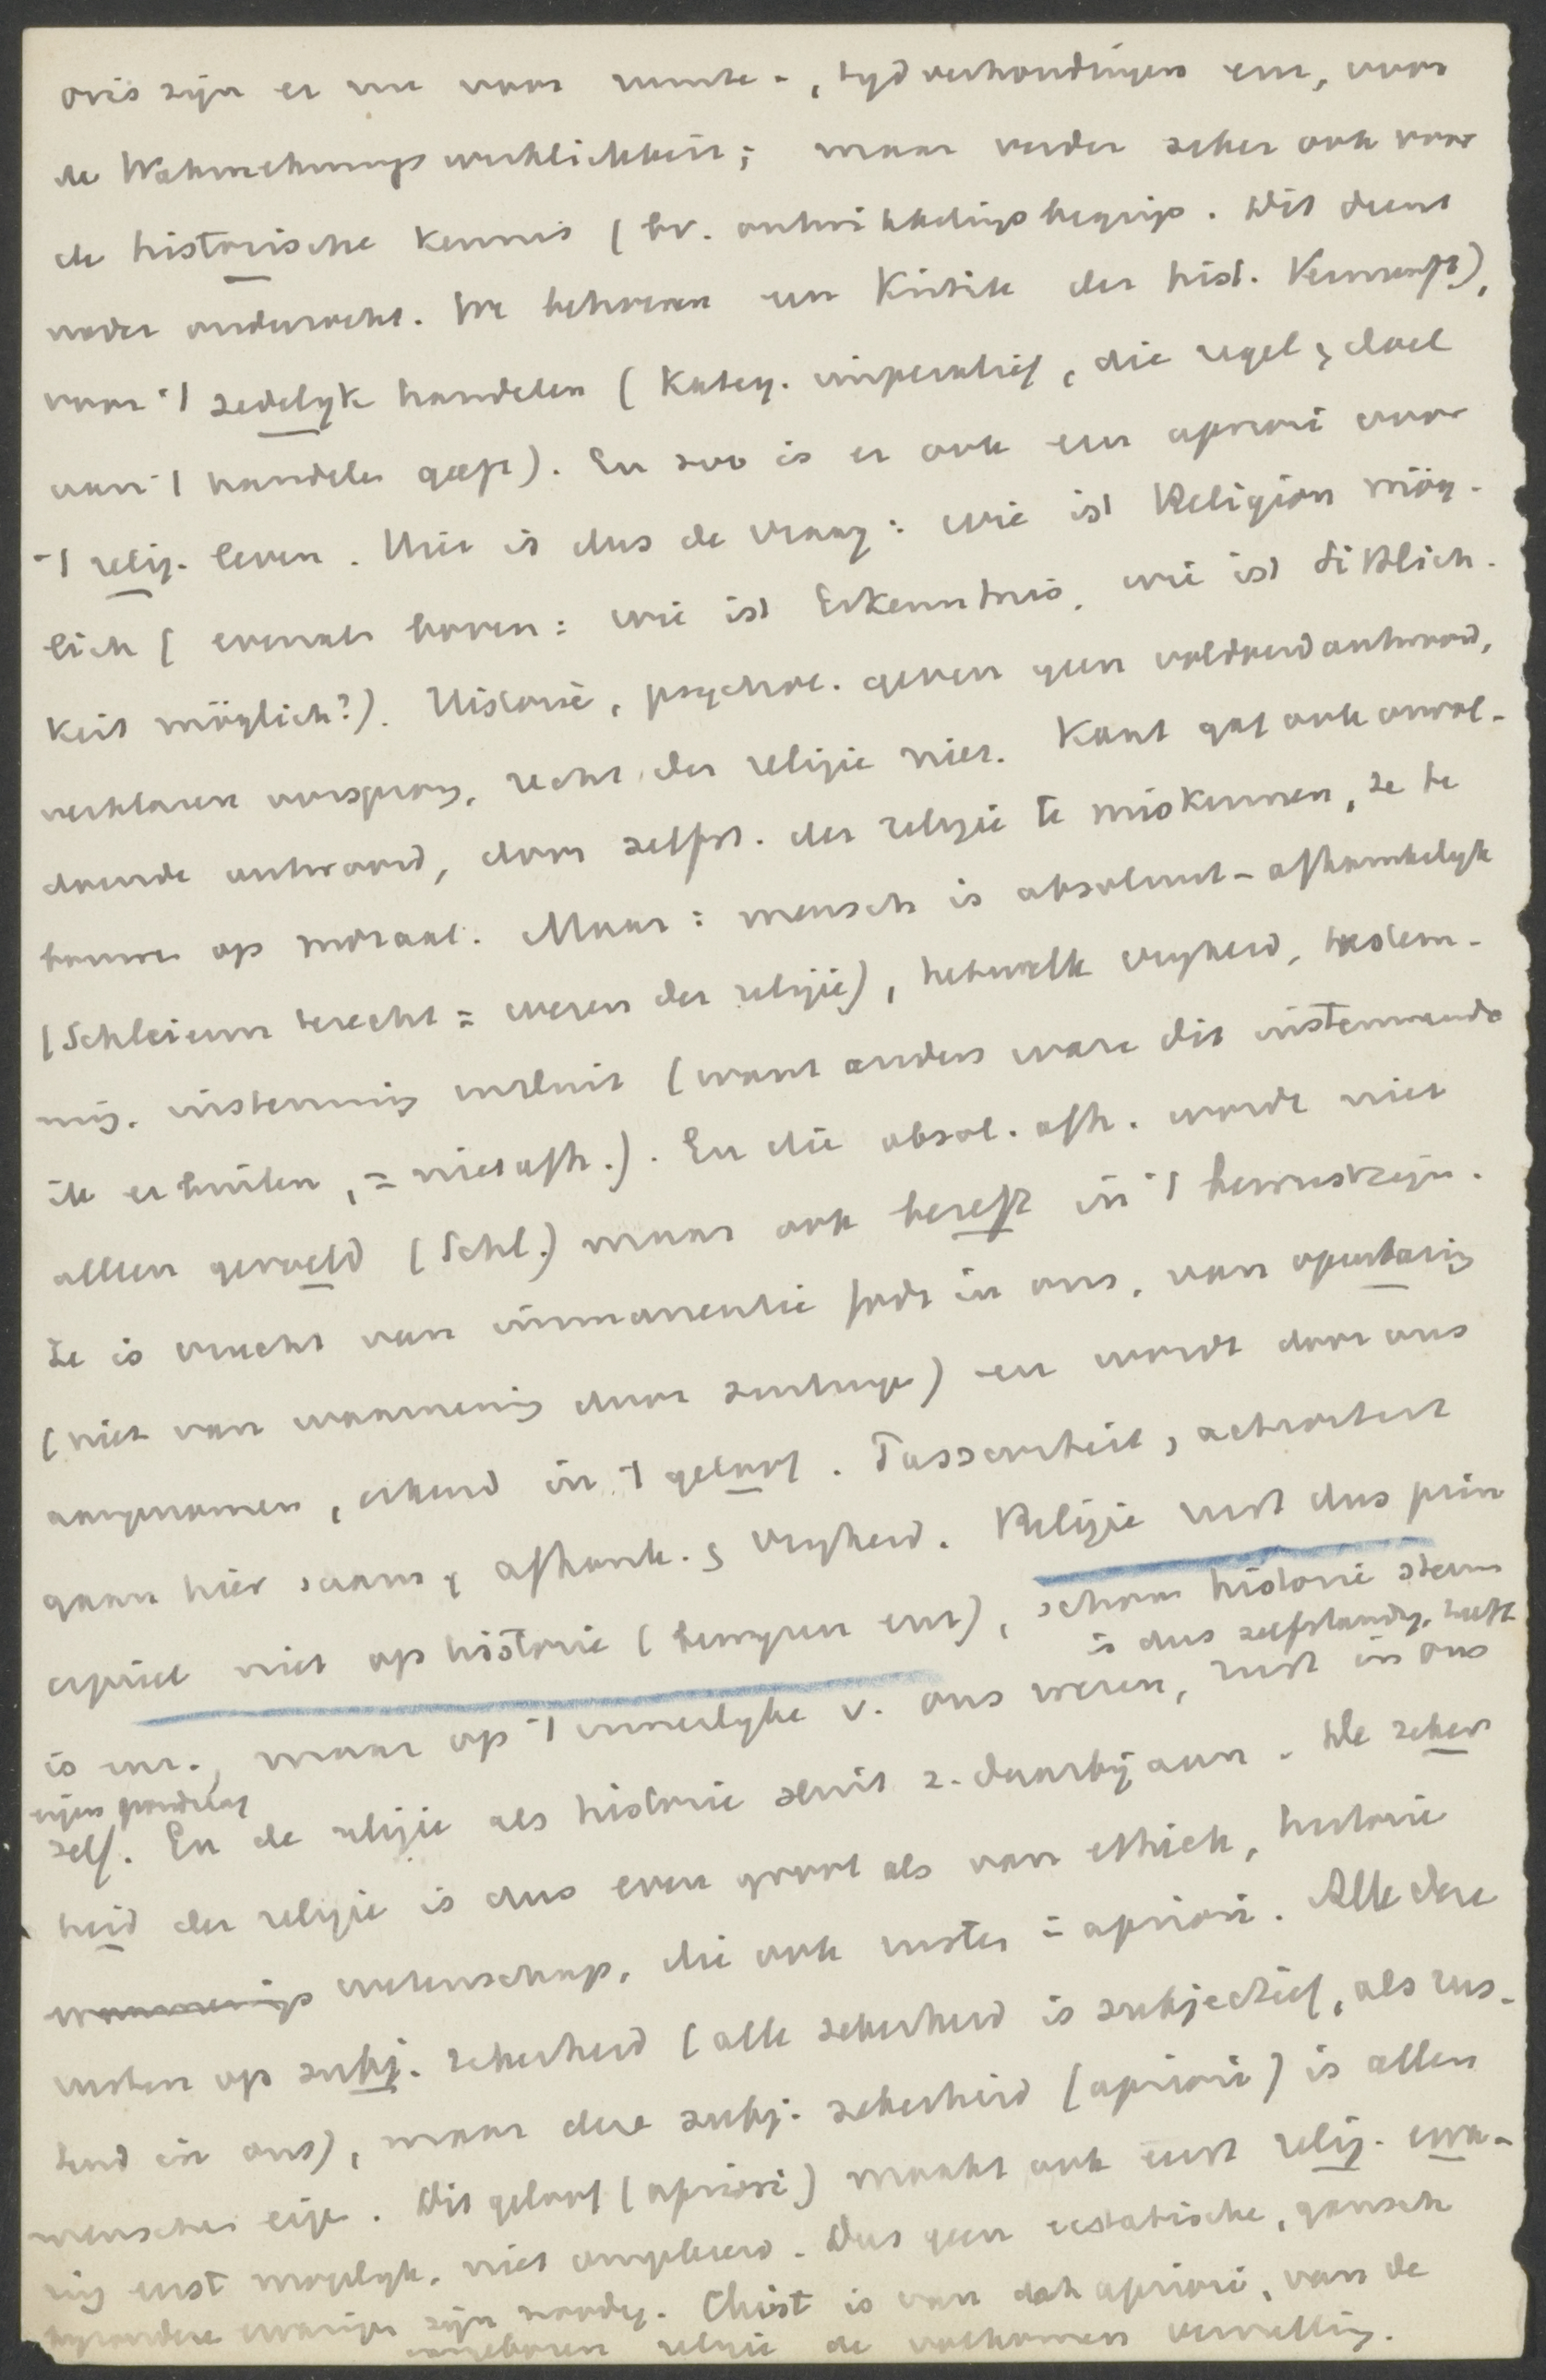 oris zijn er nu voor ruimte-, tijdverhoudingen enz, voor
de Wahrnehmungswirklichkeit; maar verder zeker ook voor
de historische kennis (bv. ontwikkelingsbegrip. Dit dient
nader onderzocht. We behoeven een Kritik der hist. Vernunft),
voor 't zedelijk handelen (Kateg. imperatief, die regel & doel
van 't handelen geeft). En zoo is er ook een apriori voor
't relig. leven. Hier is dus de vraag: wie ist Religion mög-
lich (evenals boven: wie ist Erkenntnis, wie ist Sittlich-
keit möglich?). Historie, psychol. geven geen voldoend antwoord,
verklaren oorsprong, recht der religie niet. Kant gaf ook onvol-
doende antwoord, door zelfst. der religie te miskennen, ze te
bouwen op moraal. Maar: mensch is absoluut-afhankelijk
(Schleierm terecht = wezen der religie), hetwelk vrijheid, toestem-
ming, instemming insluit (want anders ware dit instemmende
ik er buiten, = niet afh.). En die absol. afh. wordt niet
alleen gevoeld (Schl.) maar ook beseft in 't bewustzijn.
Ze is vrucht van immanentie Gods in ons, van openbaring
(niet van waarneming door zintuigen) en wordt door ons
aangenomen, erkend in 't geloof. Passiviteit, activiteit
gaan hier saam, & afhank. & vrijheid. Religie rust dus prin
cipieel niet op historie (bewijzen enz), schoon historie steun
is dus zelfstandig, heeft
is enz., maar op 't innerlijke v. ons wezen, rust in ons
eigen grondslag
zelf. En de religie als historie sluit z. daarbij aan. De zeker
heid der religie is dus even groot als van ethiek, historie
wetenschap, die ook rusten = apriori. Alle deze
rusten op subj. zekerheid (alle zekerheid is subjectief, als rus-
tend in ons), maar deze subj. zekerheid (apriori) is allen
menschen eigen. Dit geloof (apriori) maakt ook eerst relig. erva-
ring eerst mogelijk, niet omgekeerd. Dus geen ecstatische, gansch
bijzondere ervaringen zijn noodig. Christ is van dat apriori, van de
aangeboren religie de volkomen vervulling.